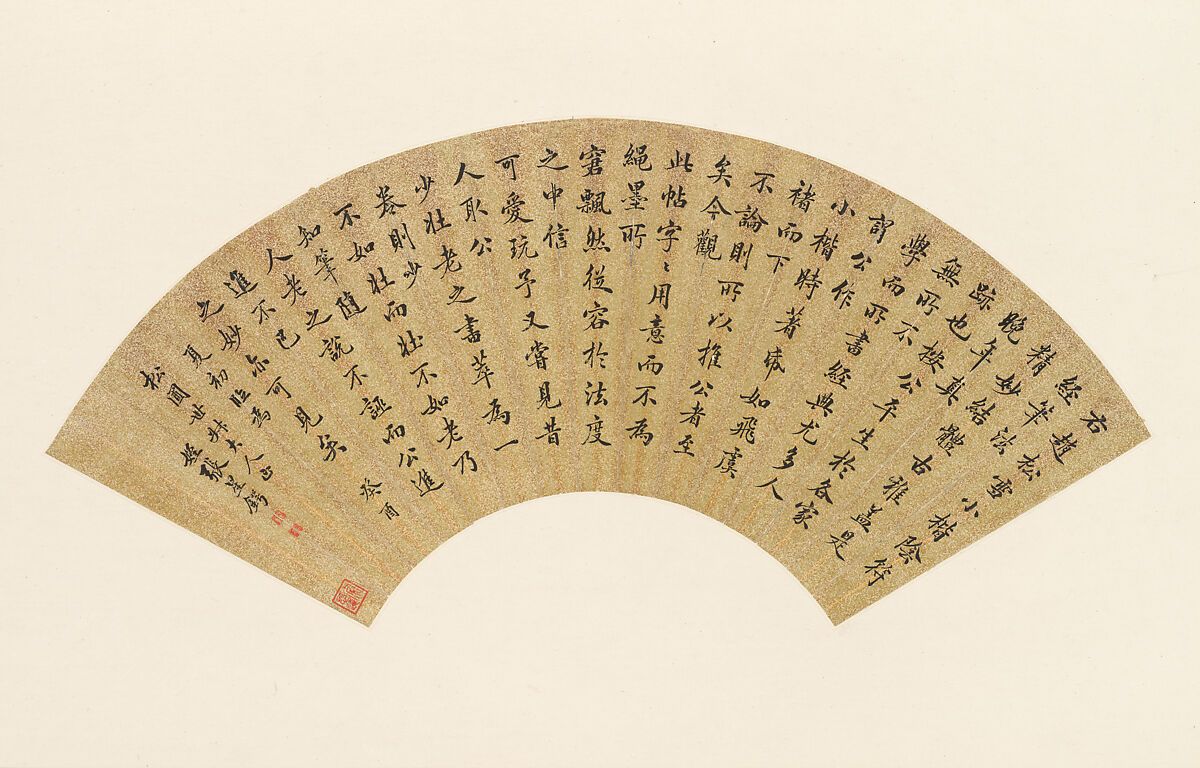 右趙松雪小楷陰符
經筆法
精妙結體古雅蓋是
晚年真
跡也按公平生於各家
無所不
學而所書經典尤多人
謂公作
小楷時著帋如飛虞
褚而下
不論則所以推公者至
矣今觀
此帖字〻用意而不為
繩墨所
窘飄然從容於法度
之中信
可愛玩予又嘗見昔
人取公
少壯老之書萃為一
卷則少
不如壯而壯不如老乃
知筆隨
人老之說不誣而公進
進不已
之妙亦可見矣 癸酉
夏初臨為
松圃世叔大人正
姪張星鍔